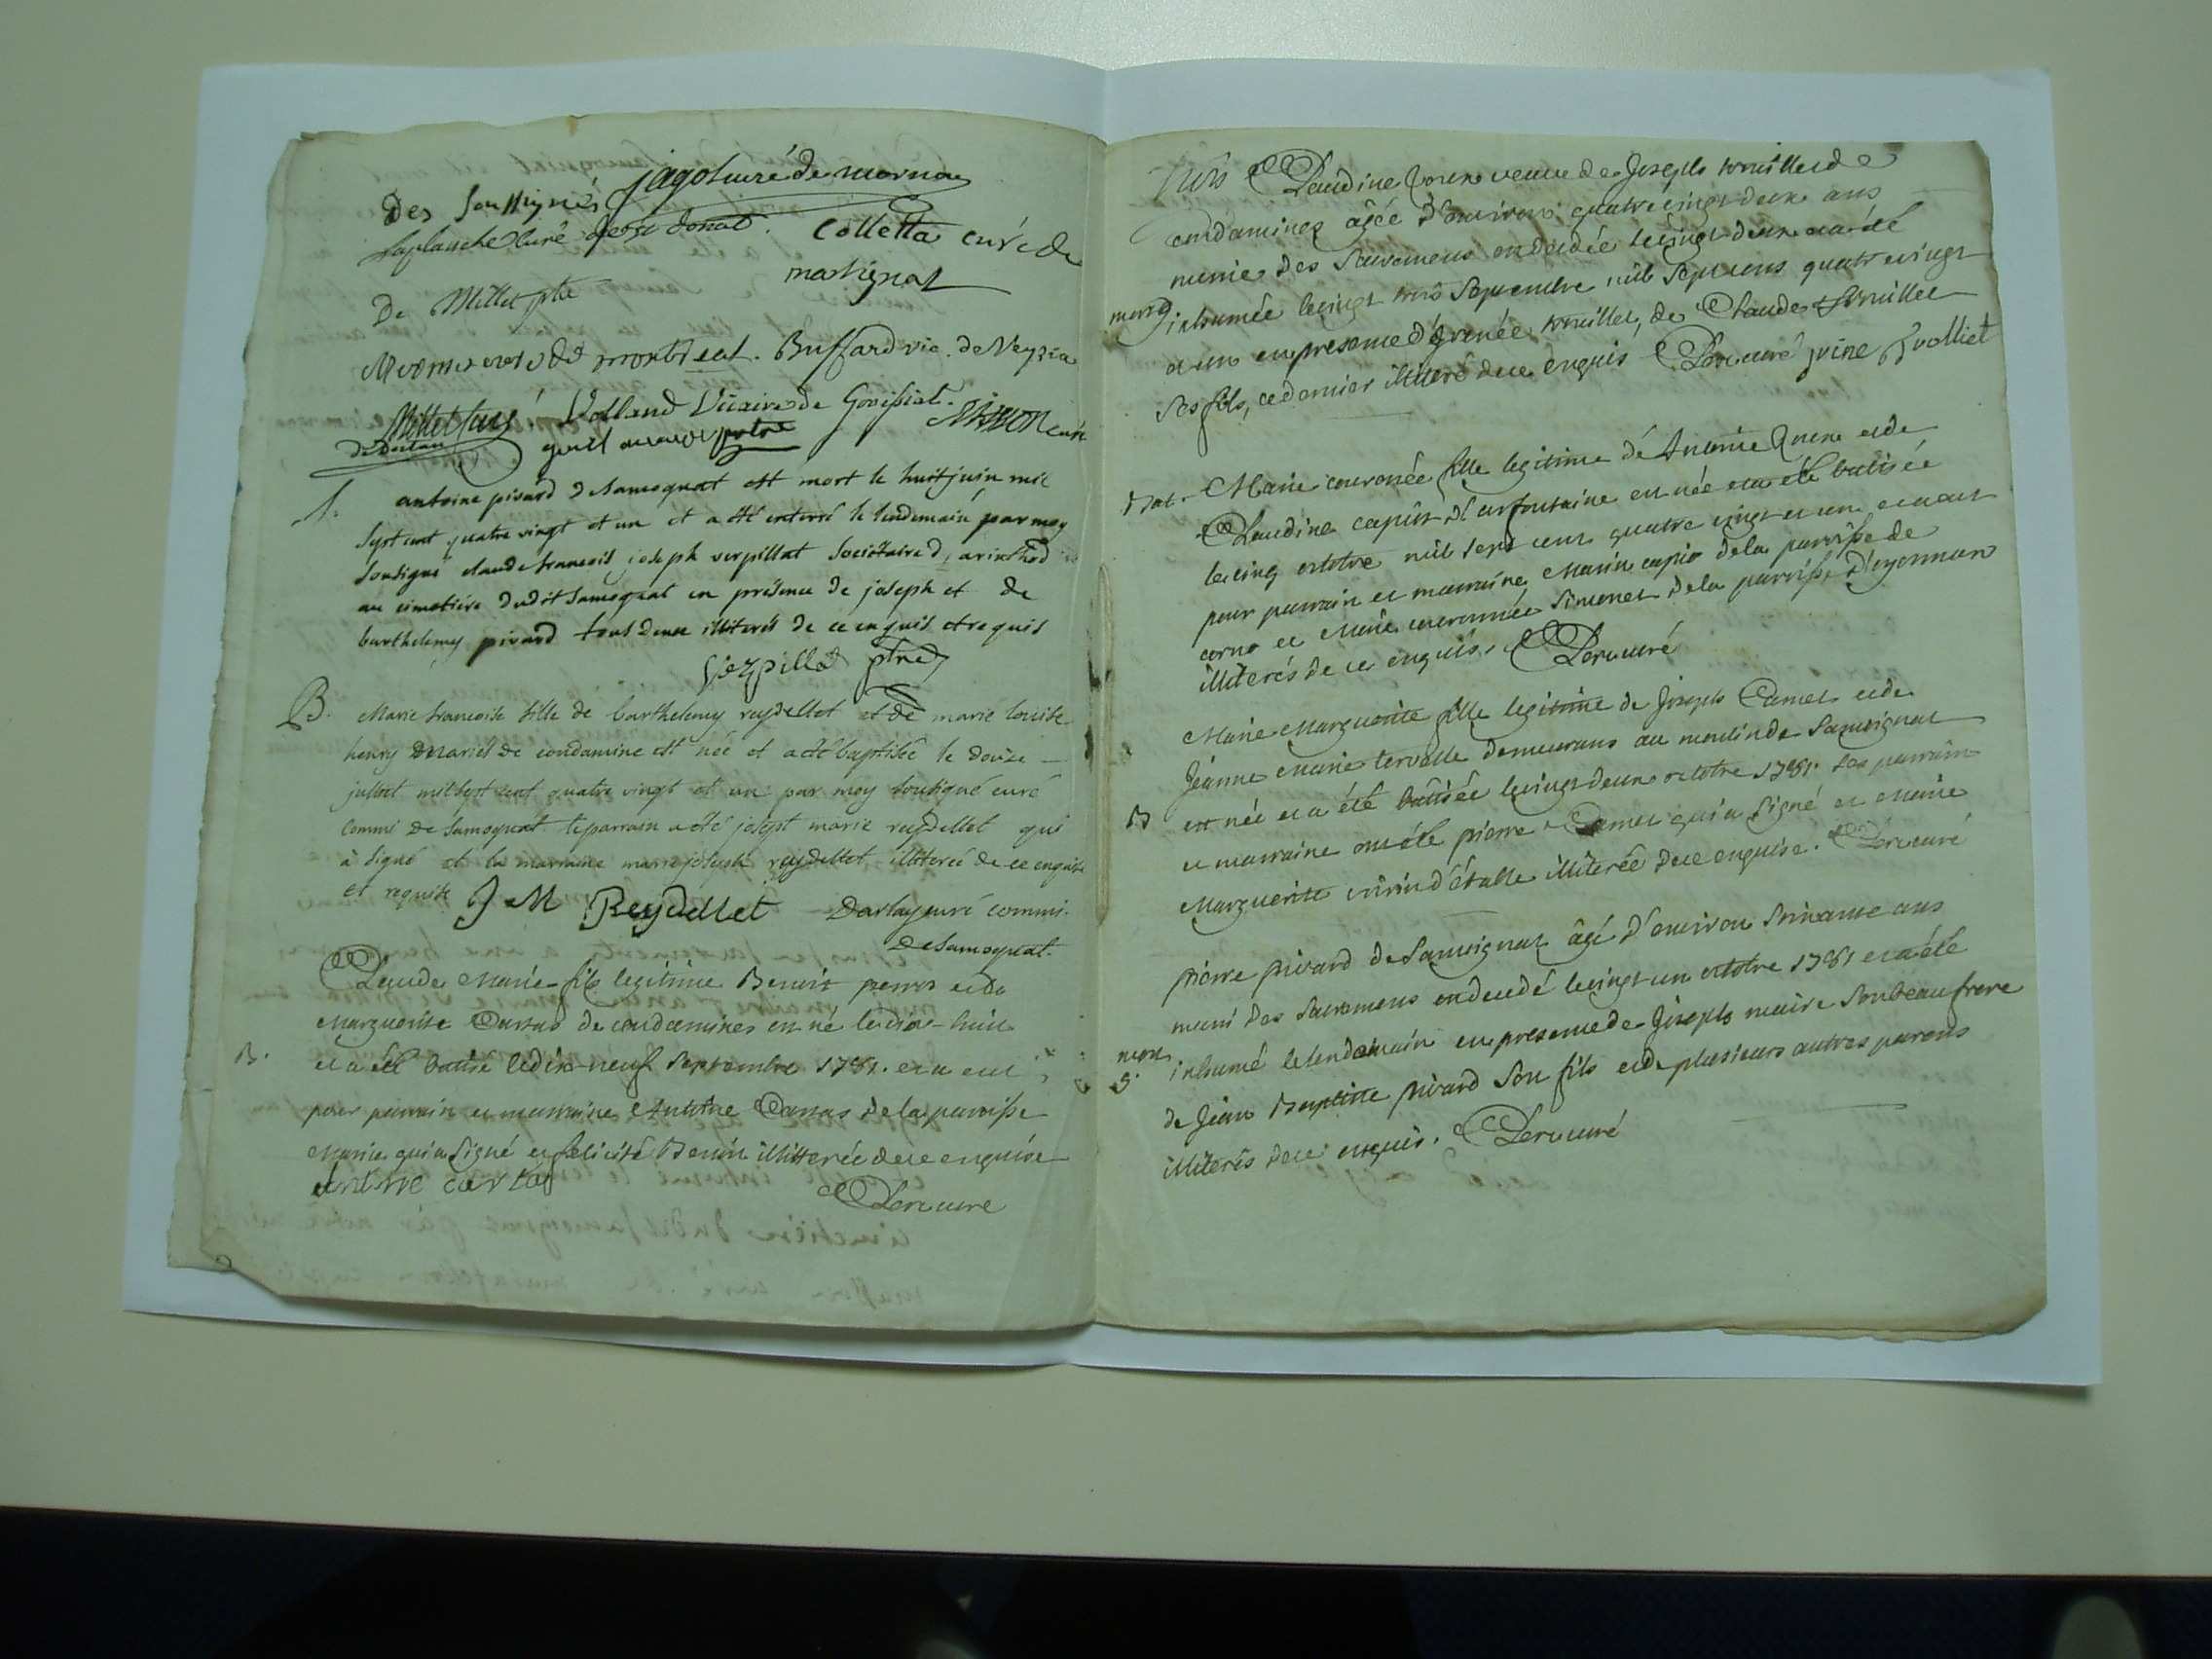 Des soussignés jagot curé de mornay
Laplanche curé de St donat. Colletta curé de
martignat
De Millet ptre
curé de montreal. Buffard vic. de Veyzia
Millet curé Volland Vicaire de Govissiat.
de Dortan curé
antoine pivard de Samognat est mort le huit juin mil
sept cent quatre vingt et un et a été enterré le lendemain par moy
Sousigné claude francois joseph verpillat Sociétaire d'arinthod
au cimetière dudit Samognat en présence de joseph et de
barthelemy pivard tous deux illiterés de ce enquis et requis
Verpillat ptre
B. Marie francoise fille de barthelemy reydellet et de marie louise
henry mariés de condamine est née et a été baptisée le douze
juillet mil sept cent quatre vingt et un par moy sousigné curé
commi de Samognat le parrain a été joseph marie reydellet qui
à signé et la marraine marie josephe reydellet illiterée de ce enquise
et requise J M Reydellet Darlay curé commi.
de Samognat.
Claude Marie fils legitime Benoit perrin et de
Marguerite Cartas de condamines est né le dix-huit
B. et a été batisé le dix-neuf Septembre 1781. et a eut
pour parrain et marraine Antoine Cartas de la paroisse
Marin qui a signé et felicité Benoit illitterée de ce enquise
antoine cartas
Leru curé
Claudine veuve de Joseph truillet de
condamines agée d'environ quatre vingt deux ans
munies des Sacremens est décédée le vingt deux a été
mort inhumée le vingt trois Septembre mil sept cens quatre vingt
et un en presence d'Grenée truillet, de Claude truillet
ses fils, ce dernier illiteré de ce enquis Leru curé
Bat. Marie couronée fille legitime de Antoine et de
Claudine capiot d'arfontaine est née et a été batisée
le cinq octobre mil sept cens quatre vingt et un et a eut
pour parrain et marraine Marin capio de la paroisse de
et Marie couronnée Simonet de la paroisse d'oyonnax
illiterés de ce enquis. Leru curé
Marie Marguerite fille legitime de Joseph Camet et de
Jeanne Marie demeurans au moulin de Samognat
B est née et a été batisée le vingt deux octobre 1781. ses parrain
et marraine ont été pierre Camet qui a signé et Marie
Marguerite illiterée de ce enquise. Leru curé
pierre pivard de Samognat âgé d'environ soixante ans
muni des Sacremens est decedé le vingt un octobre 1781 et a été
mort inhumé le lendemain en presence de Joseph maire son beau frere
S. de Jean Baptiste pivard son fils et de plusieurs autres parens
illiterés de ce enquis. Leru curé